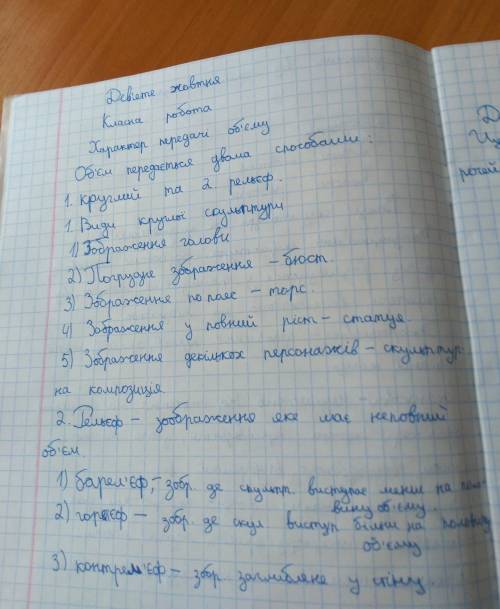 Дев'яте жовтня
Класна робота
Характер передачі об'єму
Об'єм передається двома способами:
1. круглий та 2. рельєф.
1. Види круглої скульптури
1) Зображення голови
2) Погрудне зображення – бюст
3) Зображення по пояс – торс.
4) Зображення у повний ріст – статуя.
5) Зображення декількох персонажів – скульптур-
на композиція.
2. Рельєф – зоображення яке має неповний
об'єм.
1) барел'єф, – зобр. де скульпт. виступає менш на поло-
вину об'єму.
2) горел'єф – зобр. де скул виступ більш на половину
об'єму
3) контрел'єф – збр. заглиблене у стіну.
Д
рогай